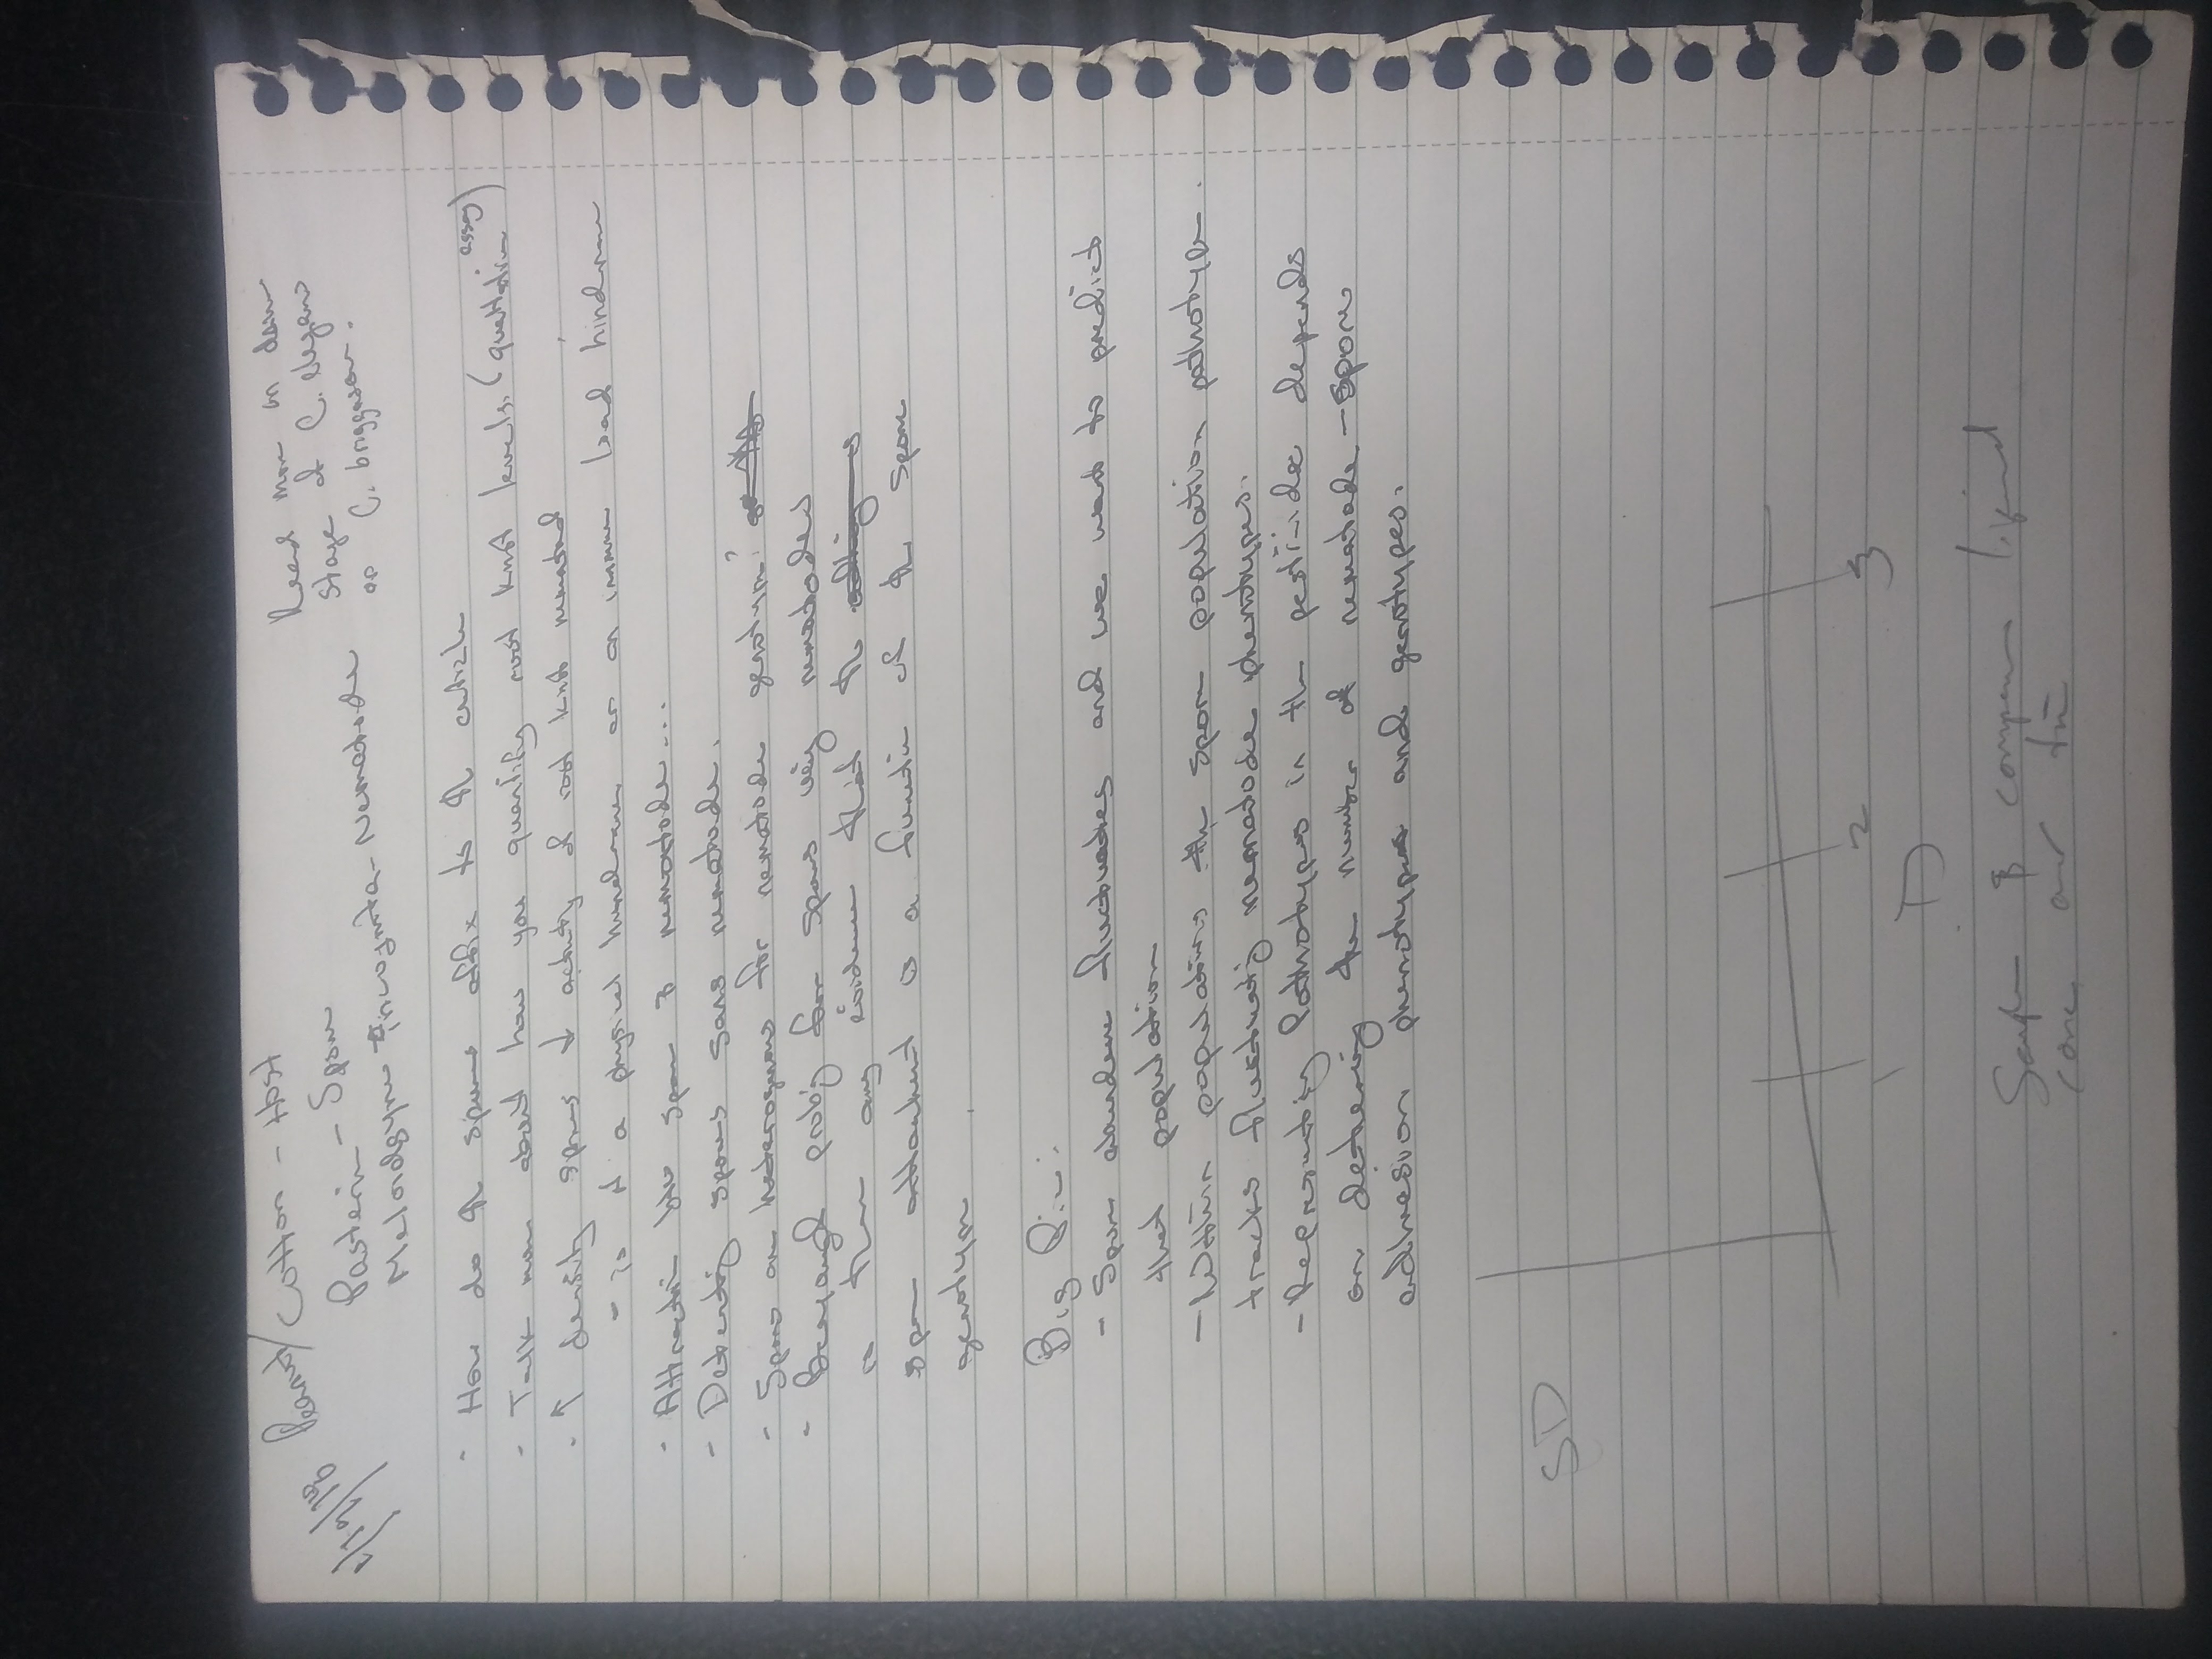 Peanut/Cotton - Host
Pasteria - Spore
Meloidogyne incognita - Nematode
Read more on dauer
stage of C. elegans
or C. briggsae.
- How do the spores affix to the cuticle
- Talk more about how you quantify root knot levels. (quantitative assay)
- ↑ density spores ↓ activity of root knot nematode
- is it a physical hindrance or an immune load hindrance
- Attraction btw spore & nematode...
- Detecting spores sans nematode.
- Spores are heterogenous for nematode genotype?
- probing for spores using nematodes
is there any evidence that the
spore attachment is a function of the spore
genotype
Big Pic:
- Spore abundance fluctuates and we want to predict
that population
- Within populations the spore population pathotype
tracks fluctuating nematode phenotypes.
- Representing Pathotypes in the pesticide depends
on determining the number of nematode - spore
adhesion phenotypes and genotypes.
SD
1 2 3
D
Sample & compare liquid
conc over time